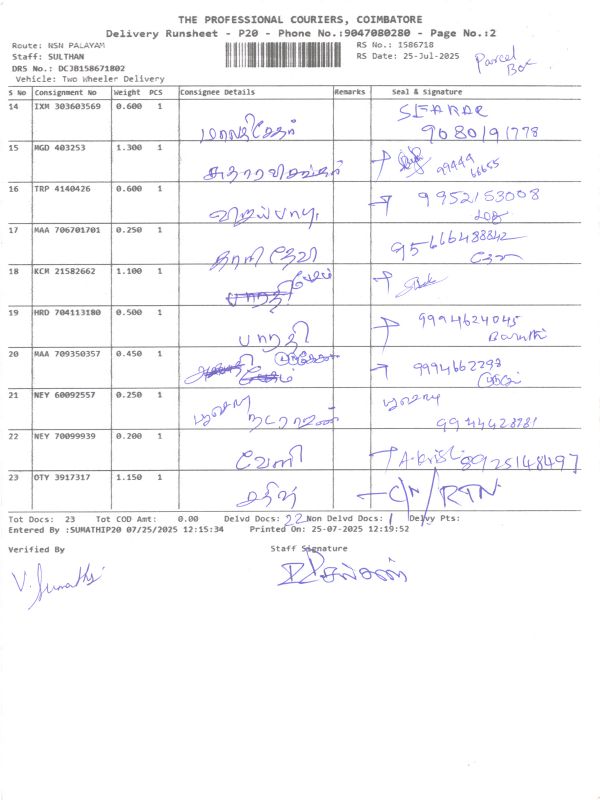 THE PROFESSIONAL COURIERS, COIMBATORE
Delivery Runsheet - P20 - Phone No.:9047080280 - Page No.:2
Route: NSN PALAYAM
RS No.: 1586718
Staff: SULTHAN
RS Date: 25-Jul-2025
Parcel
Box
DRS No.: DCJB158671802
Vehicle: Two Wheeler Delivery
S No Consignment No Weight PCS Consignee Details Remarks Seal & Signature
14 IXM 303603569 0.600 1
9080191778
15 MGD 403253 1.300 1
99449
66655
16 TRP 4140426 0.600 1 9952153008
17 MAA 706701701 0.250 1 காளி தேவி 9566648842
18 KCM 21582662 1.100 1
19 HRD 704113180 0.500 1 பாரதி 9994624045
Barathi
20 MAA 709350357 0.450 1 9994662298
21 NEY 60092557 0.250 1 நடராஜன்
9944628781
22 NEY 70099939 0.200 1 வேணி 8925148497
23 OTY 3917317 1.150 1 C/N/RTN
Tot Docs: 23 Tot COD Amt: 0.00 Delvd Docs: 22 Non Delvd Docs: 1 Delvy Pts:
Entered By :SUMATHIP20 07/25/2025 12:15:34 Printed On: 25-07-2025 12:19:52
Verified By Staff Signature
V. Sumathi